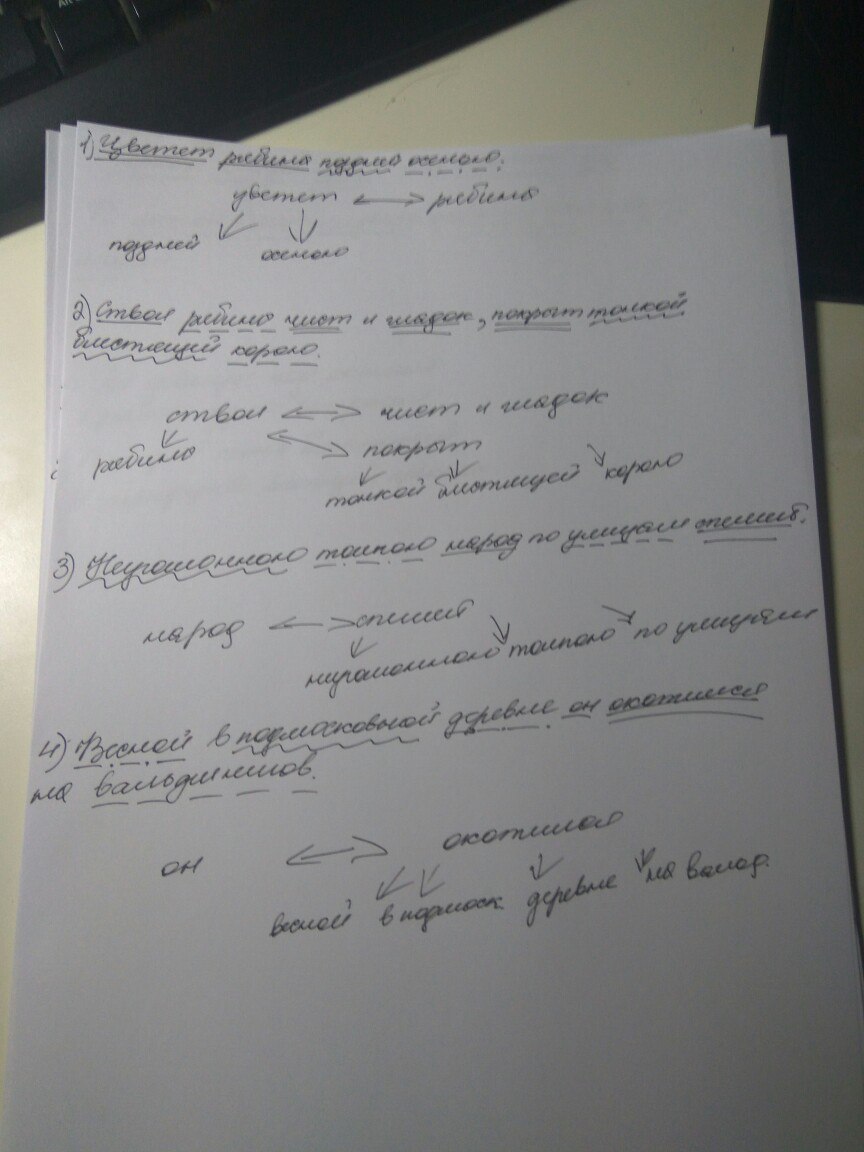 1) Цветет рябина поздней осенью.
цветет рябина
поздней осенью
2) Ствол рябины чист и гладок, покрыт тонкой
блистящей корою.
ствол чист и гладок
рябины покрыт
тонкой блистящей корою
3) Неугомонною толпою народ по улицам спешит.
народ спешит
неугомонною толпою по улицам
4) Весной в подмосковной деревне он охотился
на вальдшнепов.
он охотился
весной в подмоск. деревне на